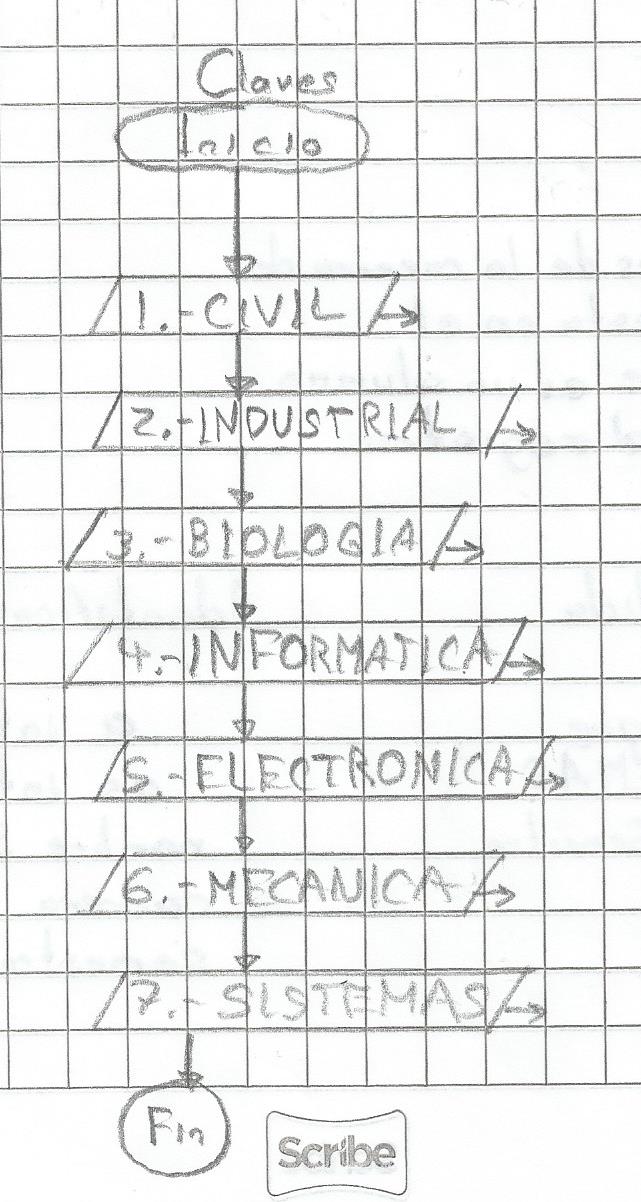 Claves
Inicio
1.-CIVIL
2.-INDUSTRIAL
3.-BIOLOGIA
4.-INFORMATICA
5.-ELECTRONICA
6.-MECANICA
7.-SISTEMAS
Fin
Scribe